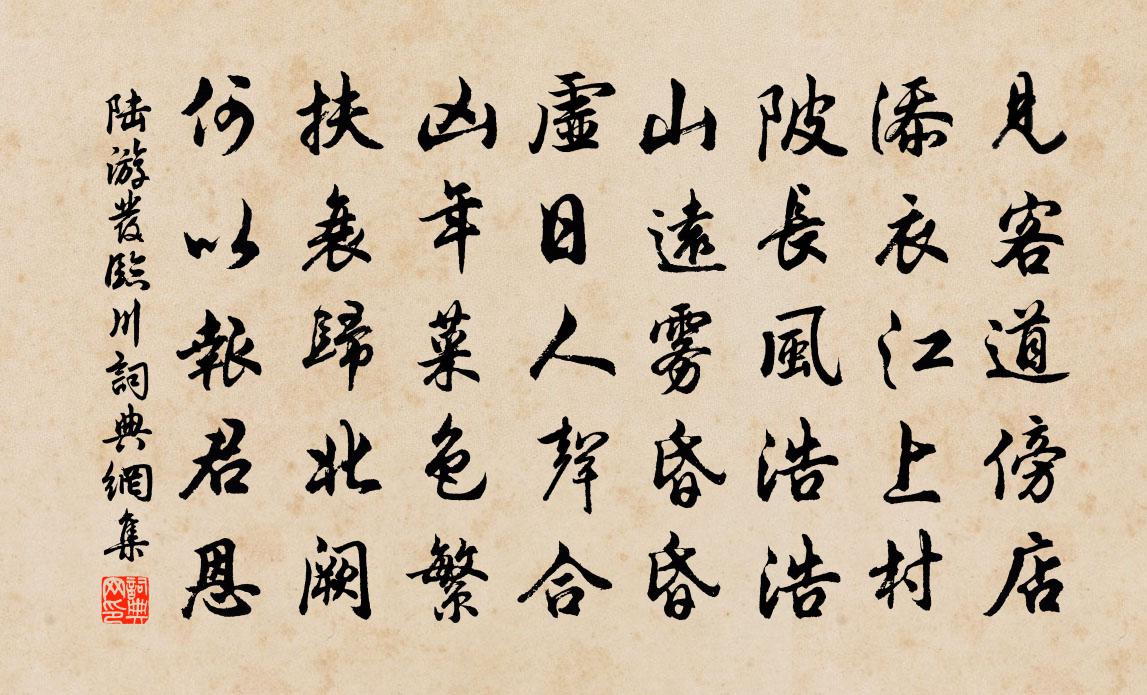 見客道傍店
添衣江上村
陂長風浩浩
山遠霧昏昏
虛日人聲合
凶年菜色繁
扶衰歸北闕
何以報君恩
陸游發臨川詞典網集
詞典網印